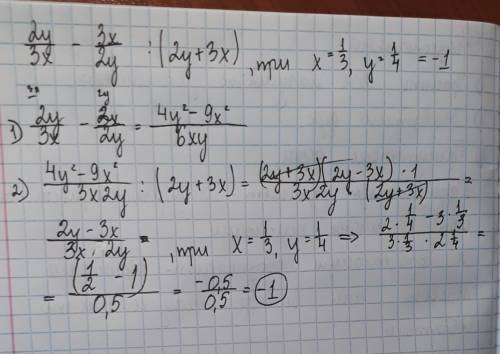 2y/3x - 3x/2y : (2y+3x), при x = 1/3, y = 1/4 = -1
1) 2y/3x - 3x/2y = (4y² - 9x²)/6xy
2) (4y² - 9x²)/(3x2y) : (2y+3x) = ((2y+3x)(2y-3x) · 1)/(3x2y (2y+3x)) =
(2y - 3x)/(3x · 2y) = , при x = 1/3, y = 1/4 => (2 · 1/4 - 3 · 1/3)/(3 · 1/3 · 2 1/4) =
= (1/2 - 1)/0,5 = -0,5/0,5 = -1